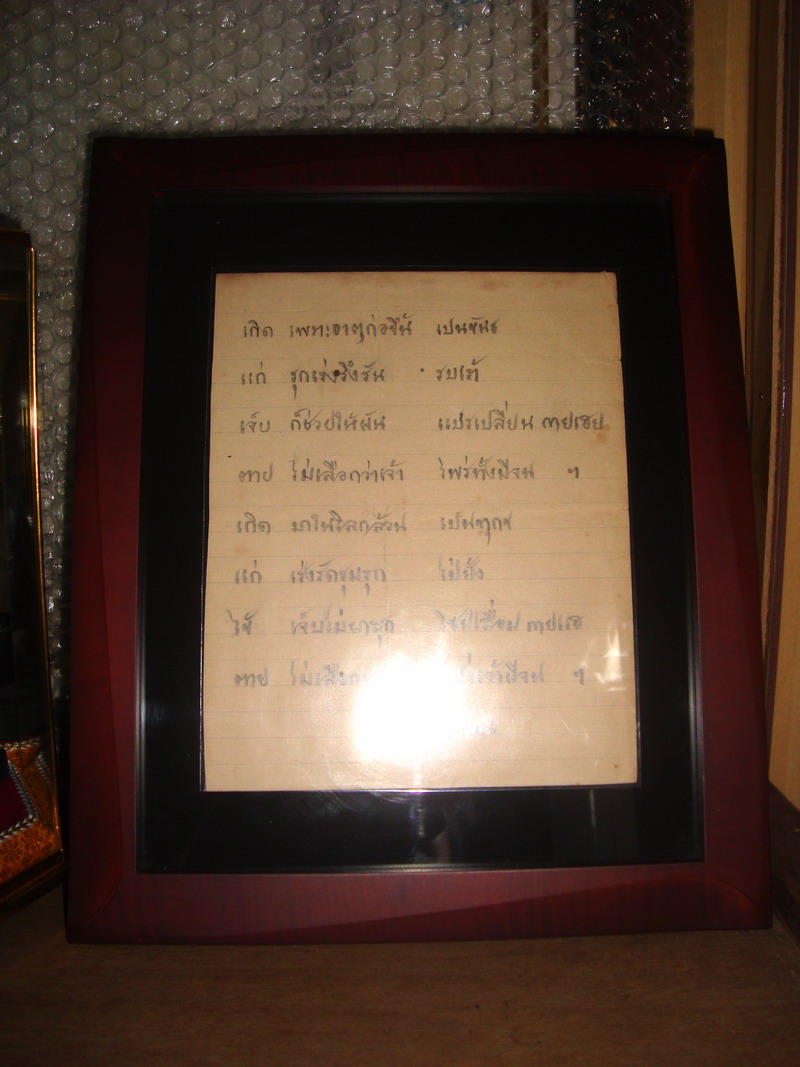 เกิด เพทะธาตุก่อขึ้น เปนขันธ
แก่ รุกเร่งรึงรัน รบเท้
เจ็บ ก็ช่วยให้ผัน แปรเปลี่ยน ตายเฮย
ตาย ไม่เลือกว่าเจ้า ไพร่ทั้งมีจน ๆ
เกิด มาในโลกล้วน เป็นทุกข
แก่ เร่งรัดรุมรุก ไป่ยั้ง
ไข้ เจ็บไม่ผาสุก ตายแฮ
ตาย ไม่เลือก เจ้ามีจน ๆ